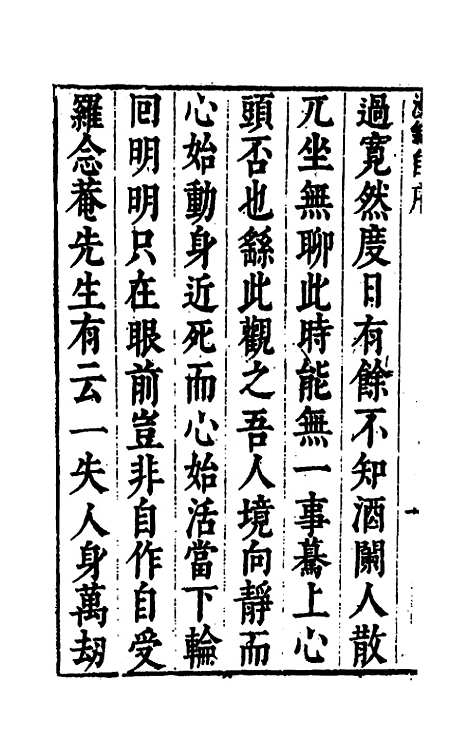 過寛然度日有餘不知酒闌人散
兀坐無聊此時能無一事驀上心
頭否也繇此觀之吾人境向靜而
心始動身近死而心始活當下輪
回明明只在眼前豈非自作自受
羅念菴先生有云一失人身萬刼